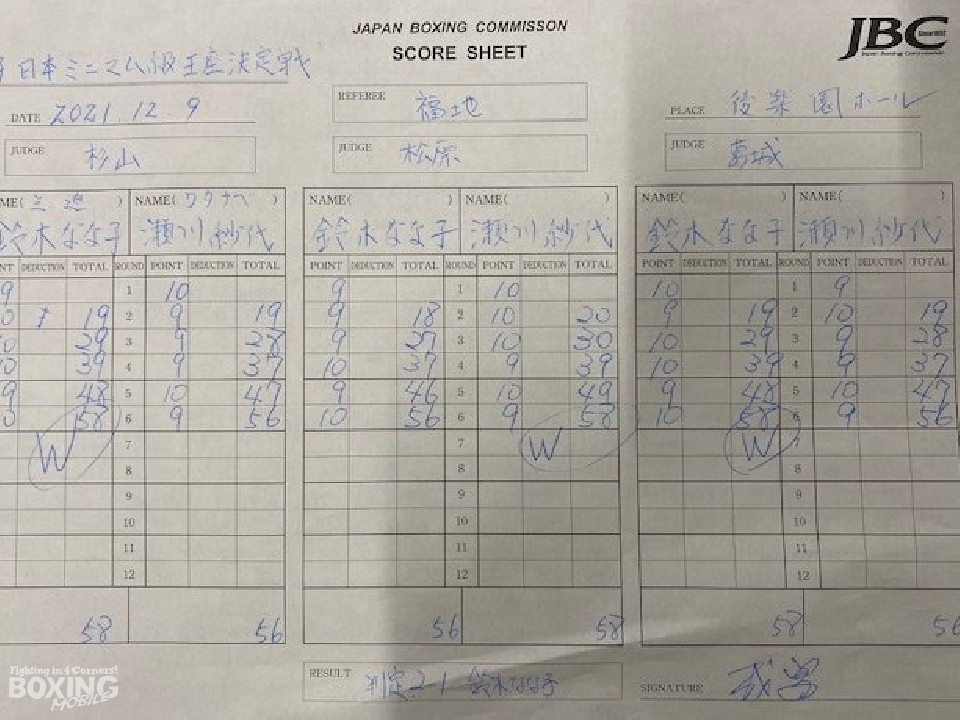 JAPAN BOXING COMMISSON
SCORE SHEET
JBC
Since 1952
Japan Boxing Commission
日本ミニマム級王座決定戦
DATE 2021.12.9
REFEREE 福地
PLACE 後楽園ホール
JUDGE 杉山
JUDGE 松原
JUDGE 葛城
ME(三迫) NAME(ワタナベ) NAME( ) NAME( ) NAME( ) NAME( )
鈴木なな子 瀬川紗代 鈴木なな子 瀬川紗代 鈴木なな子 瀬川紗代
NT DEDUCTION TOTAL ROUND POINT DEDUCTION TOTAL POINT DEDUCTION TOTAL ROUND POINT DEDUCTION TOTAL POINT DEDUCTION TOTAL ROUND POINT DEDUCTION TOTAL
9 1 10 9 1 10 10 1 9
0 19 2 9 19 9 18 2 10 20 9 19 2 10 19
10 29 3 9 28 9 27 3 10 30 10 29 3 9 28
10 39 4 9 37 10 37 4 9 39 10 39 4 9 37
9 48 5 10 47 9 46 5 10 49 9 48 5 10 47
0 58 6 9 56 10 56 6 9 58 10 58 6 9 56
W 7 7 W W 7
8 8 8
9 9 9
10 10 10
11 11 11
12 12 12
58 56 56 58 58 56
RESULT 判定2-1 鈴木なな子
SIGNATURE
Fighting in 4 Corners!
BOXING
MOBILE